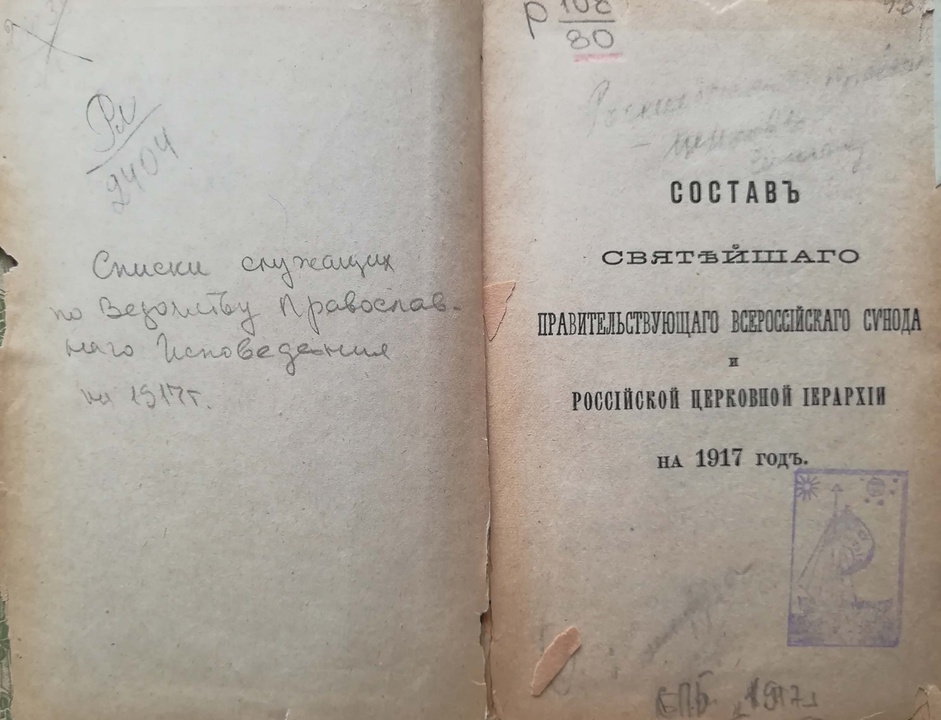 Рл
2404
Списки служащих
по Ведомству Православ-
ного Исповедания
на 1917г.
р 108
80
СОСТАВЪ
СВЯТѢЙШАГО
ПРАВИТЕЛЬСТВУЮЩАГО ВСЕРОССІЙСКАГО СѴНОДА
И
РОССІЙСКОЙ ЦЕРКОВНОЙ ІЕРАРХІИ
НА 1917 ГОДЪ.
1917